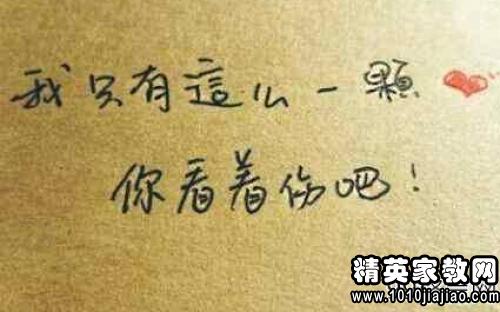 我只有這么一顆❤
你看着伤吧！
精英家教网
www.1010jiajiao.com